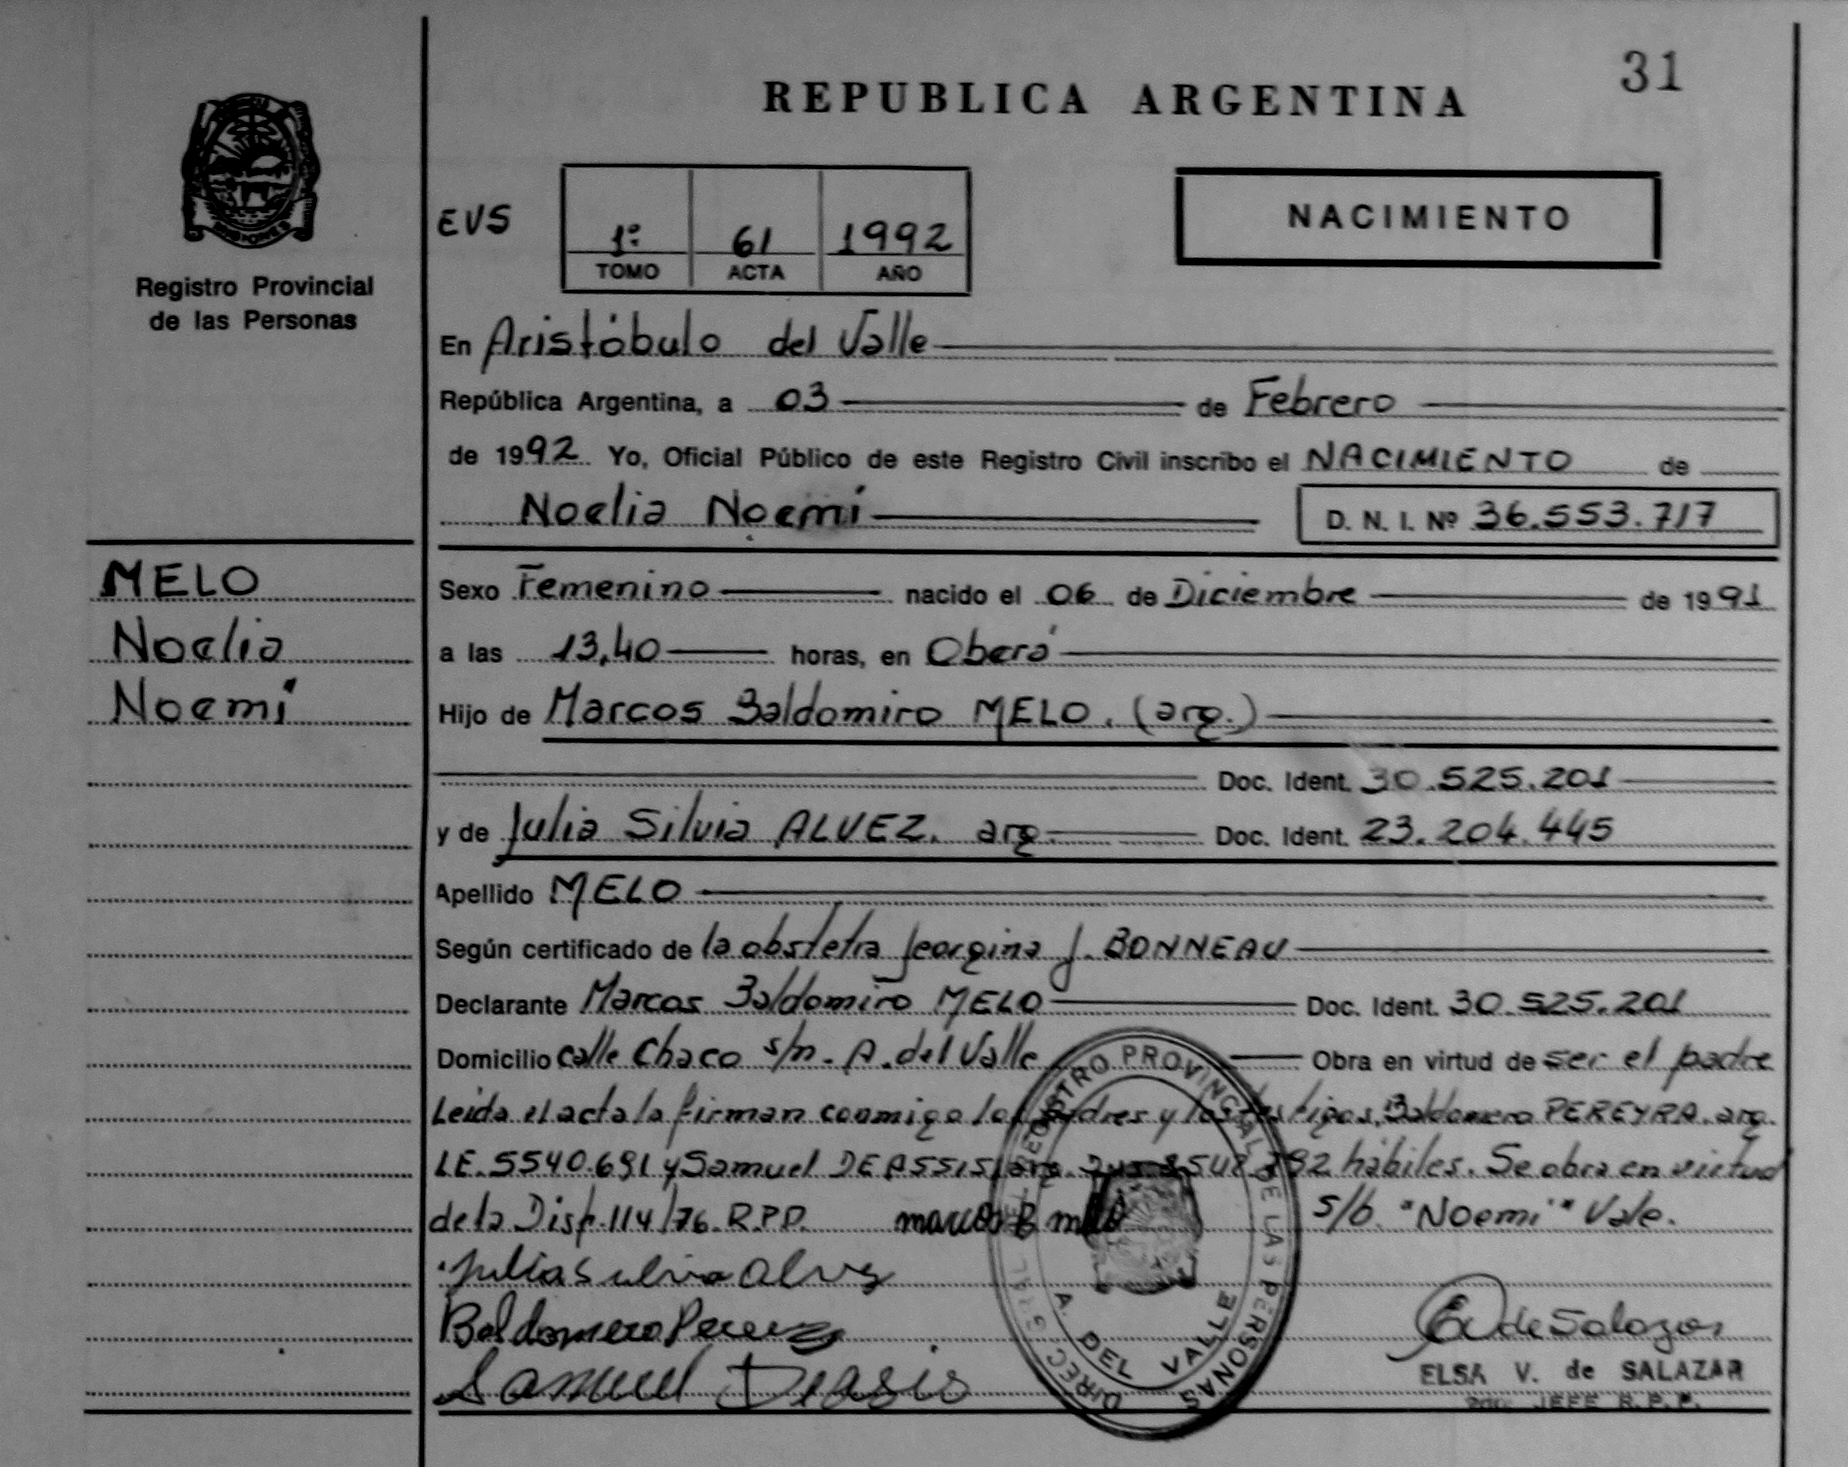 31
REPUBLICA ARGENTINA
Registro Provincial
de las Personas
EVS
1º 61 1992
TOMO ACTA AÑO
NACIMIENTO
En Aristóbulo del Valle
República Argentina, a 03 de Febrero
de 1992 Yo, Oficial Público de este Registro Civil inscribo el NACIMIENTO de
Noelia Noemí D. N. I. Nº 36.553.717
MELO
Noelia
Noemí
Sexo Femenino nacido el 06 de Diciembre de 1991
a las 13,40 horas, en Oberá
Hijo de Marcos Baldomiro MELO. (arg.)
Doc. Ident. 30.525.201
y de Julia Silvia ALVEZ. arg. Doc. Ident. 23.204.445
Apellido MELO
Según certificado de la obstetra Jeorgina J. BONNEAU
Declarante Marcos Baldomiro MELO Doc. Ident. 30.525.201
Domicilio calle Chaco s/n. A. del Valle Obra en virtud de ser el padre
Leida el acta la firman conmigo los padres y los testigos, Baldomero PEREYRA. arg.
LE. 5540.691 y Samuel DE ASSIS, arg. hábiles. Se obra en virtud
de la Disp. 114/76. R.P.P. marcos B melo s/b. "Noemí" Vale.
Julia Silvia Alvez
Baldomero Pereyra
Samuel Deasis
E V de Salazar
ELSA V. de SALAZAR
JEFE R. P. P.
DIREC. GRAL. DEL REGISTRO PROVINCIAL DE LAS PERSONAS
A. DEL VALLE